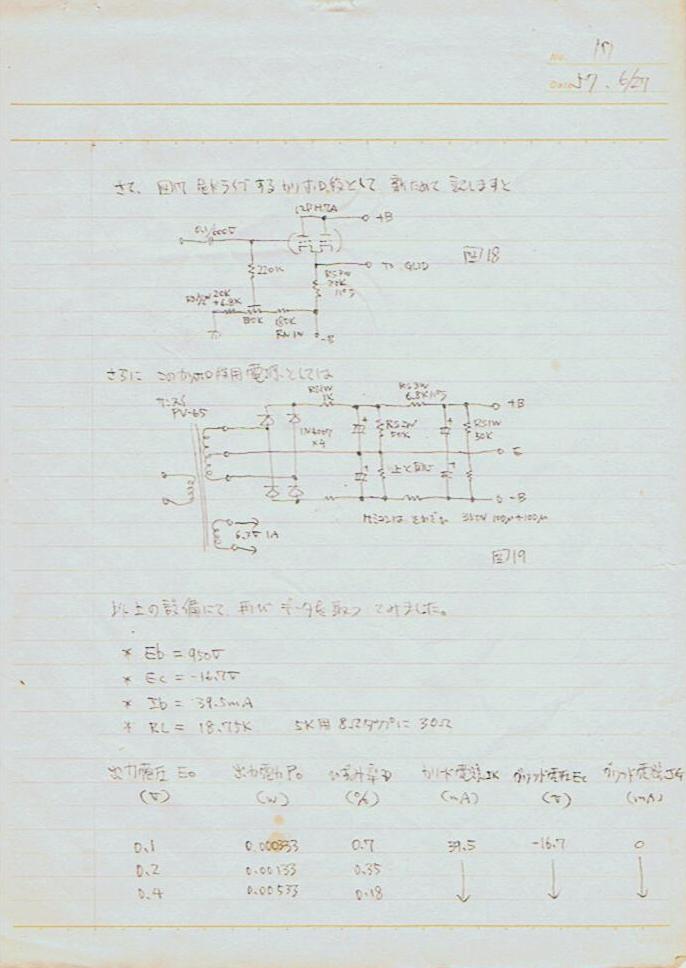 No. 17
Date 57. 6/27
さて、図17をドライブするカソホロ段として改ためて記しますと
12BH7A
+B
0.1/600V
図18
TO GRID
220K
RS3W
20K
20K
+6.8K
B5K
RN1W
-B
さらにこのカソホロ段用電源としては
RS1W
1K
RS3W
6.8K
+B
PV-65
1N4007
×4
RS2W
50K
RS1W
30K
E
上と同じ
-B
ケミコンはそれぞれ 350V 100μ+100μ
6.3V 1A
図19
以上の設備にて、再びデータを取ってみました。
* Eb = 950V
* Ec = -16.7V
* Ib = 39.5mA
* RL = 18.75K 5K用 8Ωタップに 30Ω
出力電圧 Eo 出力電力 Po ひずみ率 D カソード電流 IK グリッド電圧 Ec グリッド電流 IG
(V) (W) (%) (mA) (V) (mA)
0.1 0.000333 0.7 39.5 -16.7 0
0.2 0.00133 0.35
0.4 0.00533 0.18